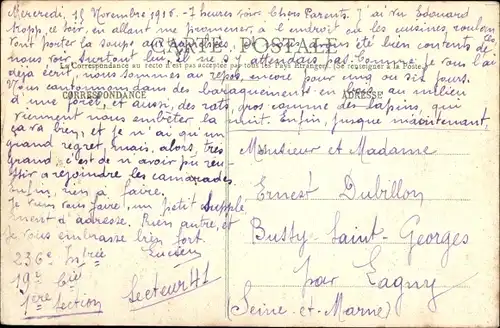 Mercredi, 15 Novembre 1916. - 7 heures soir. Chers Parents. J'ai vu Edouard
ce soir, en allant me promener, à l'endroit où les cuisines roulan
vont porter la soupe aux
CARTE POSTALE
été bien contents de
nous voir. Surtout lui, il ne s'y attendait pas. Comme je vous l'ai
La Correspondance au recto n'est pas acceptée par tous les pays étrangers (Se renseigner à la Poste)
déjà écrit, nous sommes au repos, encore pour cinq ou six jours.
Nous cantonnons dans des baraquements en bois, au milieu
CORRESPONDANCE
ADRESSE
d'une forêt, et aussi, des rats, gros comme des lapins, qui
viennent nous embêter la nuit. Enfin, jusque maintenant,
ça va bien, et je n'ai qu'un
grand regret, mais, alors, très
grand, c'est de n'avoir pu réu-
ssir à rejoindre les camarades
Enfin, rien à faire.
Je vais vous faire, un petit supplé
ment d'adresse. Rien autre, et
Je vous embrasse bien fort.
Lucien
236e Inf​rie
19e Cie
1ère Section
Secteur 41
Monsieur et Madame
Ernest Dubillon
Bussy-Saint-Georges
par Lagny
(Seine-et-Marne)